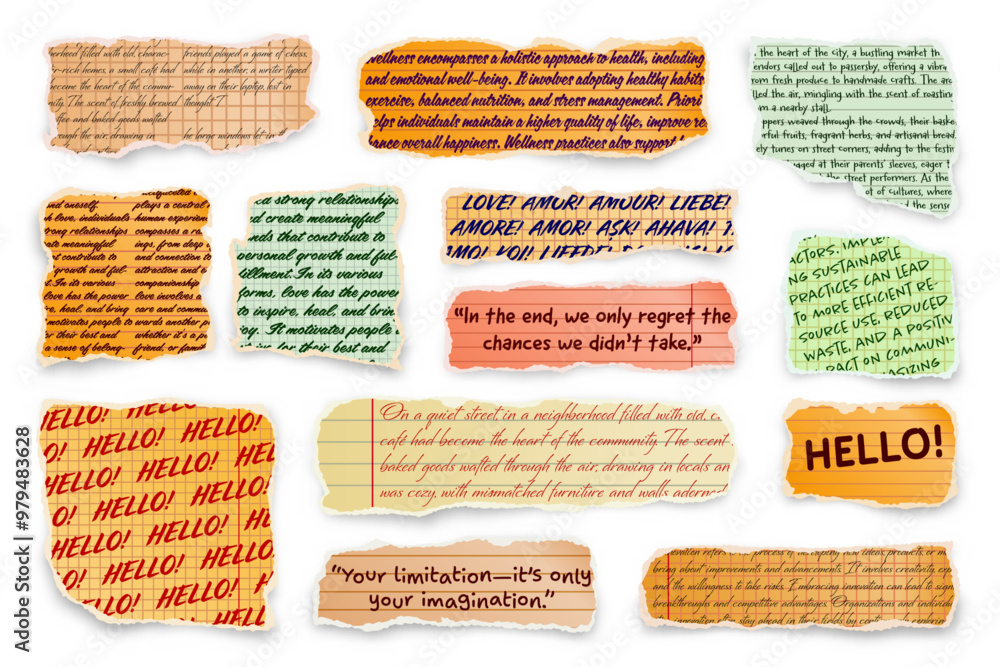 erhood filled with old, charac-
er-rich homes, a small café had
become the heart of the commu-
nity. The scent of freshly brewed
ffee and baked goods wafted
ugh the air, drawing in
friends played a game of chess,
while in another, a writer typed
away on their laptop, lost in
thought. T
he large windows let in th
wellness encompasses a holistic approach to health, including
and emotional well-being. It involves adopting healthy habits
exercise, balanced nutrition, and stress management. Priori
elps individuals maintain a higher quality of life, improve re
ance overall happiness. Wellness practices also support
the heart of the city, a bustling market th
endors called out to passersby, offering a vibra
rom fresh produce to handmade crafts. The aro
lled the air, mingling with the scent of roastin
m a nearby stall.
ppers weaved through the crowds, their baske
rful fruits, fragrant herbs, and artisanal bread.
ely tunes on street corners, adding to the festiv
gged at their parents' sleeves, eager
the street performers. As the
of cultures, where
d the sense
and oneself.
h love, individuals
trong relationships
te meaningful
t contribute to
growth and ful-
t. In its various
love has the power
re, heal, and bring
motivates people to
r their best and
a sense of belong-
plays a central
human experien
compasses a ra
ings, from deep
and connection to
attraction and
companionship
love involves a
care and commu
wards another p
whether it's a p
friend, or fami
ed strong relationships
d create meaningful
nds that contribute to
personal growth and ful-
fillment. In its various
forms, love has the power
to inspire, heal, and brin
joy. It motivates people
for their best and
LOVE! AMOR! AMOUR! LIEBE!
AMORE! AMOR! AŞK! AHAVA!
"In the end, we only regret the
chances we didn't take."
ACTORS. IMPLE
NG SUSTAINABLE
PRACTICES CAN LEAD
TO MORE EFFICIENT RE-
SOURCE USE, REDUCED
WASTE, AND A POSITIV
PACT ON COMMUNI
ASIZING
HELLO! HELLO!
O! HELLO! HELLO!
HELLO! HELLO! HEL
O! HELLO! HELLO!
HELLO! HELLO! HEL
O! HELLO! HELLO!
HELLO! HELLO! HE
O! HELLO! HELLO!
HELLO! HELLO!
HELLO!
On a quiet street in a neighborhood filled with old, c
café had become the heart of the community. The scent
baked goods wafted through the air, drawing in locals an
was cozy, with mismatched furniture and walls adorned
HELLO!
"Your limitation—it's only
your imagination."
ovation refers process of new ideas, products, or m
bring about improvements and advancements. It involves creativity, exp
the willingness to take risks. Embracing innovation can lead to sign
breakthroughs and competitive advantages. Organizations and individ
innovation often stay ahead in their fields by
Adobe Stock | #979483628